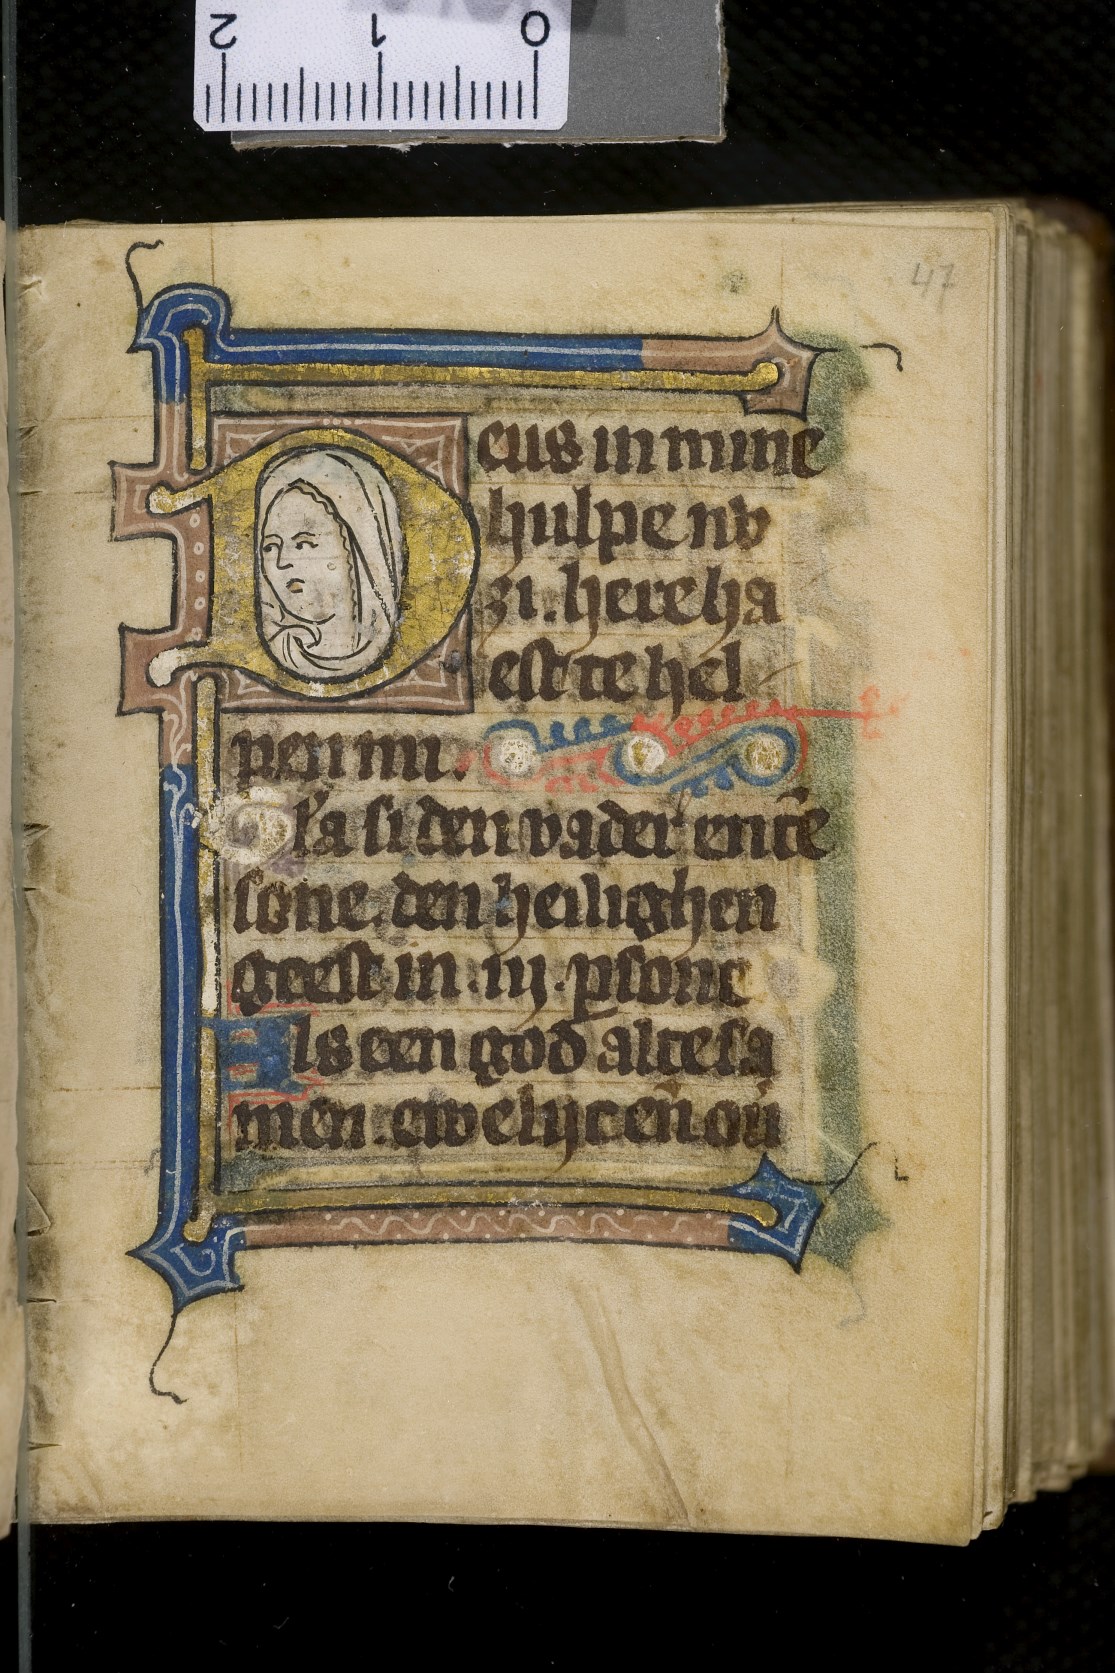 2 1 0
47
Deus in mine
hulpe nv
zi. here ha
est te hel
pen mi.
Gl'a si den vader en̄ te
sone. den heilighen
geest in .iij. psone
Als een god alte sa
men. ewelijc en̄ oū